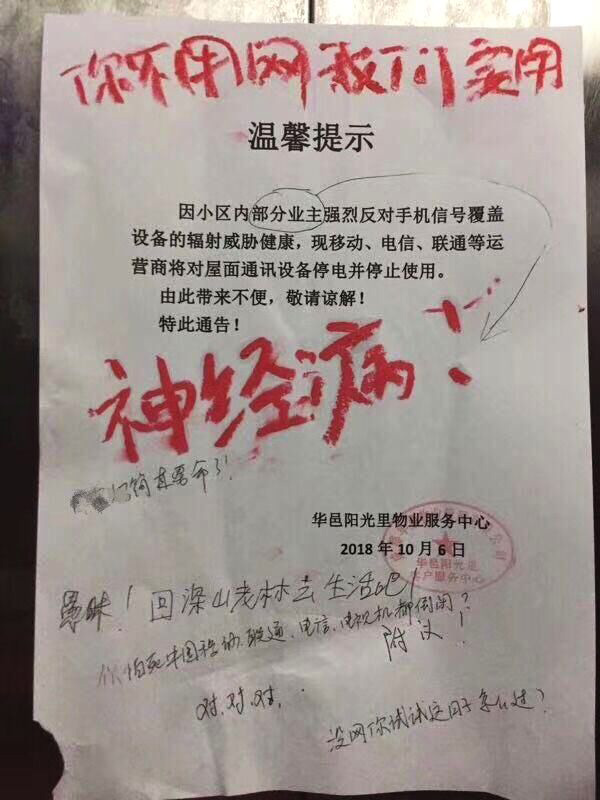 你不用网我们要用
温馨提示
因小区内部分业主强烈反对手机信号覆盖
设备的辐射威胁健康，现移动、电信、联通等运
营商将对屋面通讯设备停电并停止使用。
由此带来不便，敬请谅解！
特此通告！
神经病！
们简直要命了！
华邑阳光里物业服务中心
2018年10月6日
华邑阳光里
客户服务中心
愚昧！回深山老林去生活吧！
你怕死中国移动、联通、电信、电视机都倒闭？
附议！
对，对，对，
没网你试试这日子怎么过？